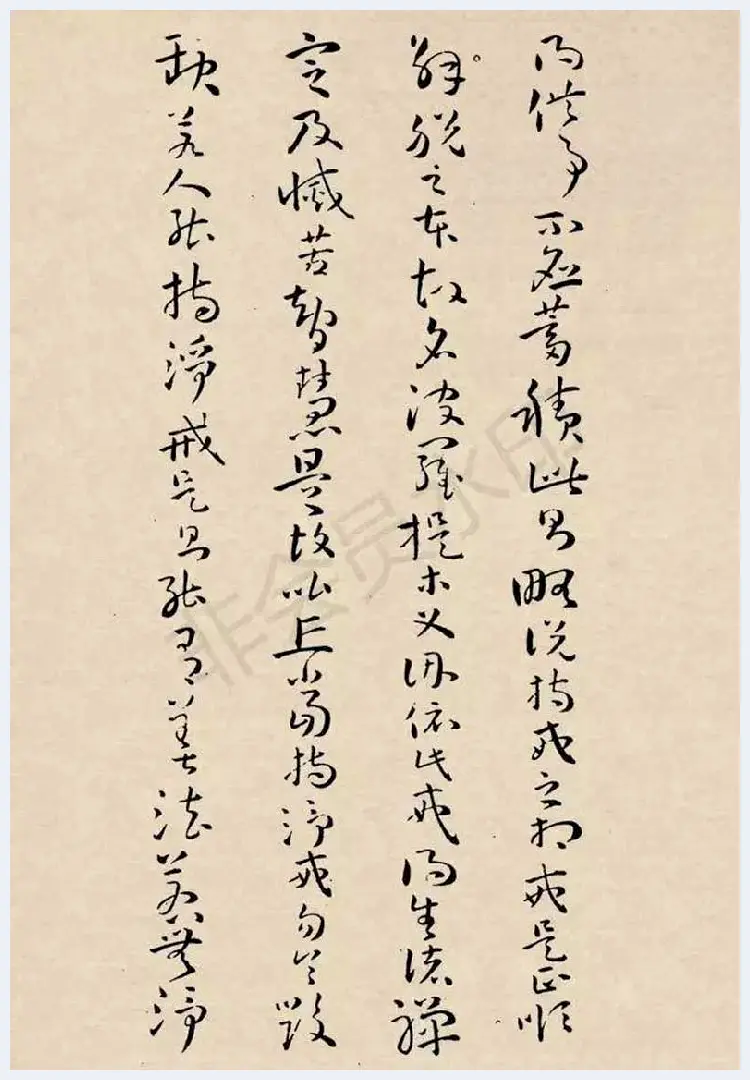 得供事不應蓄積此則略說持戒之相戒是正順
解脫之本故名波羅提木叉因依此戒得生諸禪
定及滅苦智慧是故比丘當持淨戒勿令毀
缺若人能持淨戒是則能有善法若無淨
非会员水印